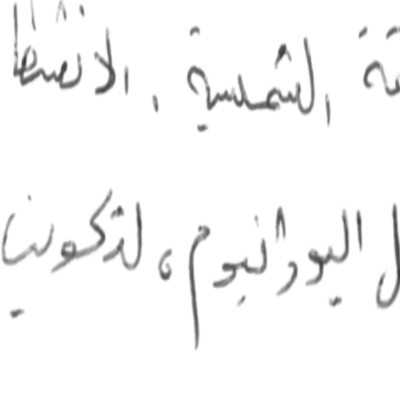 الشمسية ، الانشطا
ل اليورانيوم ، لتكوين